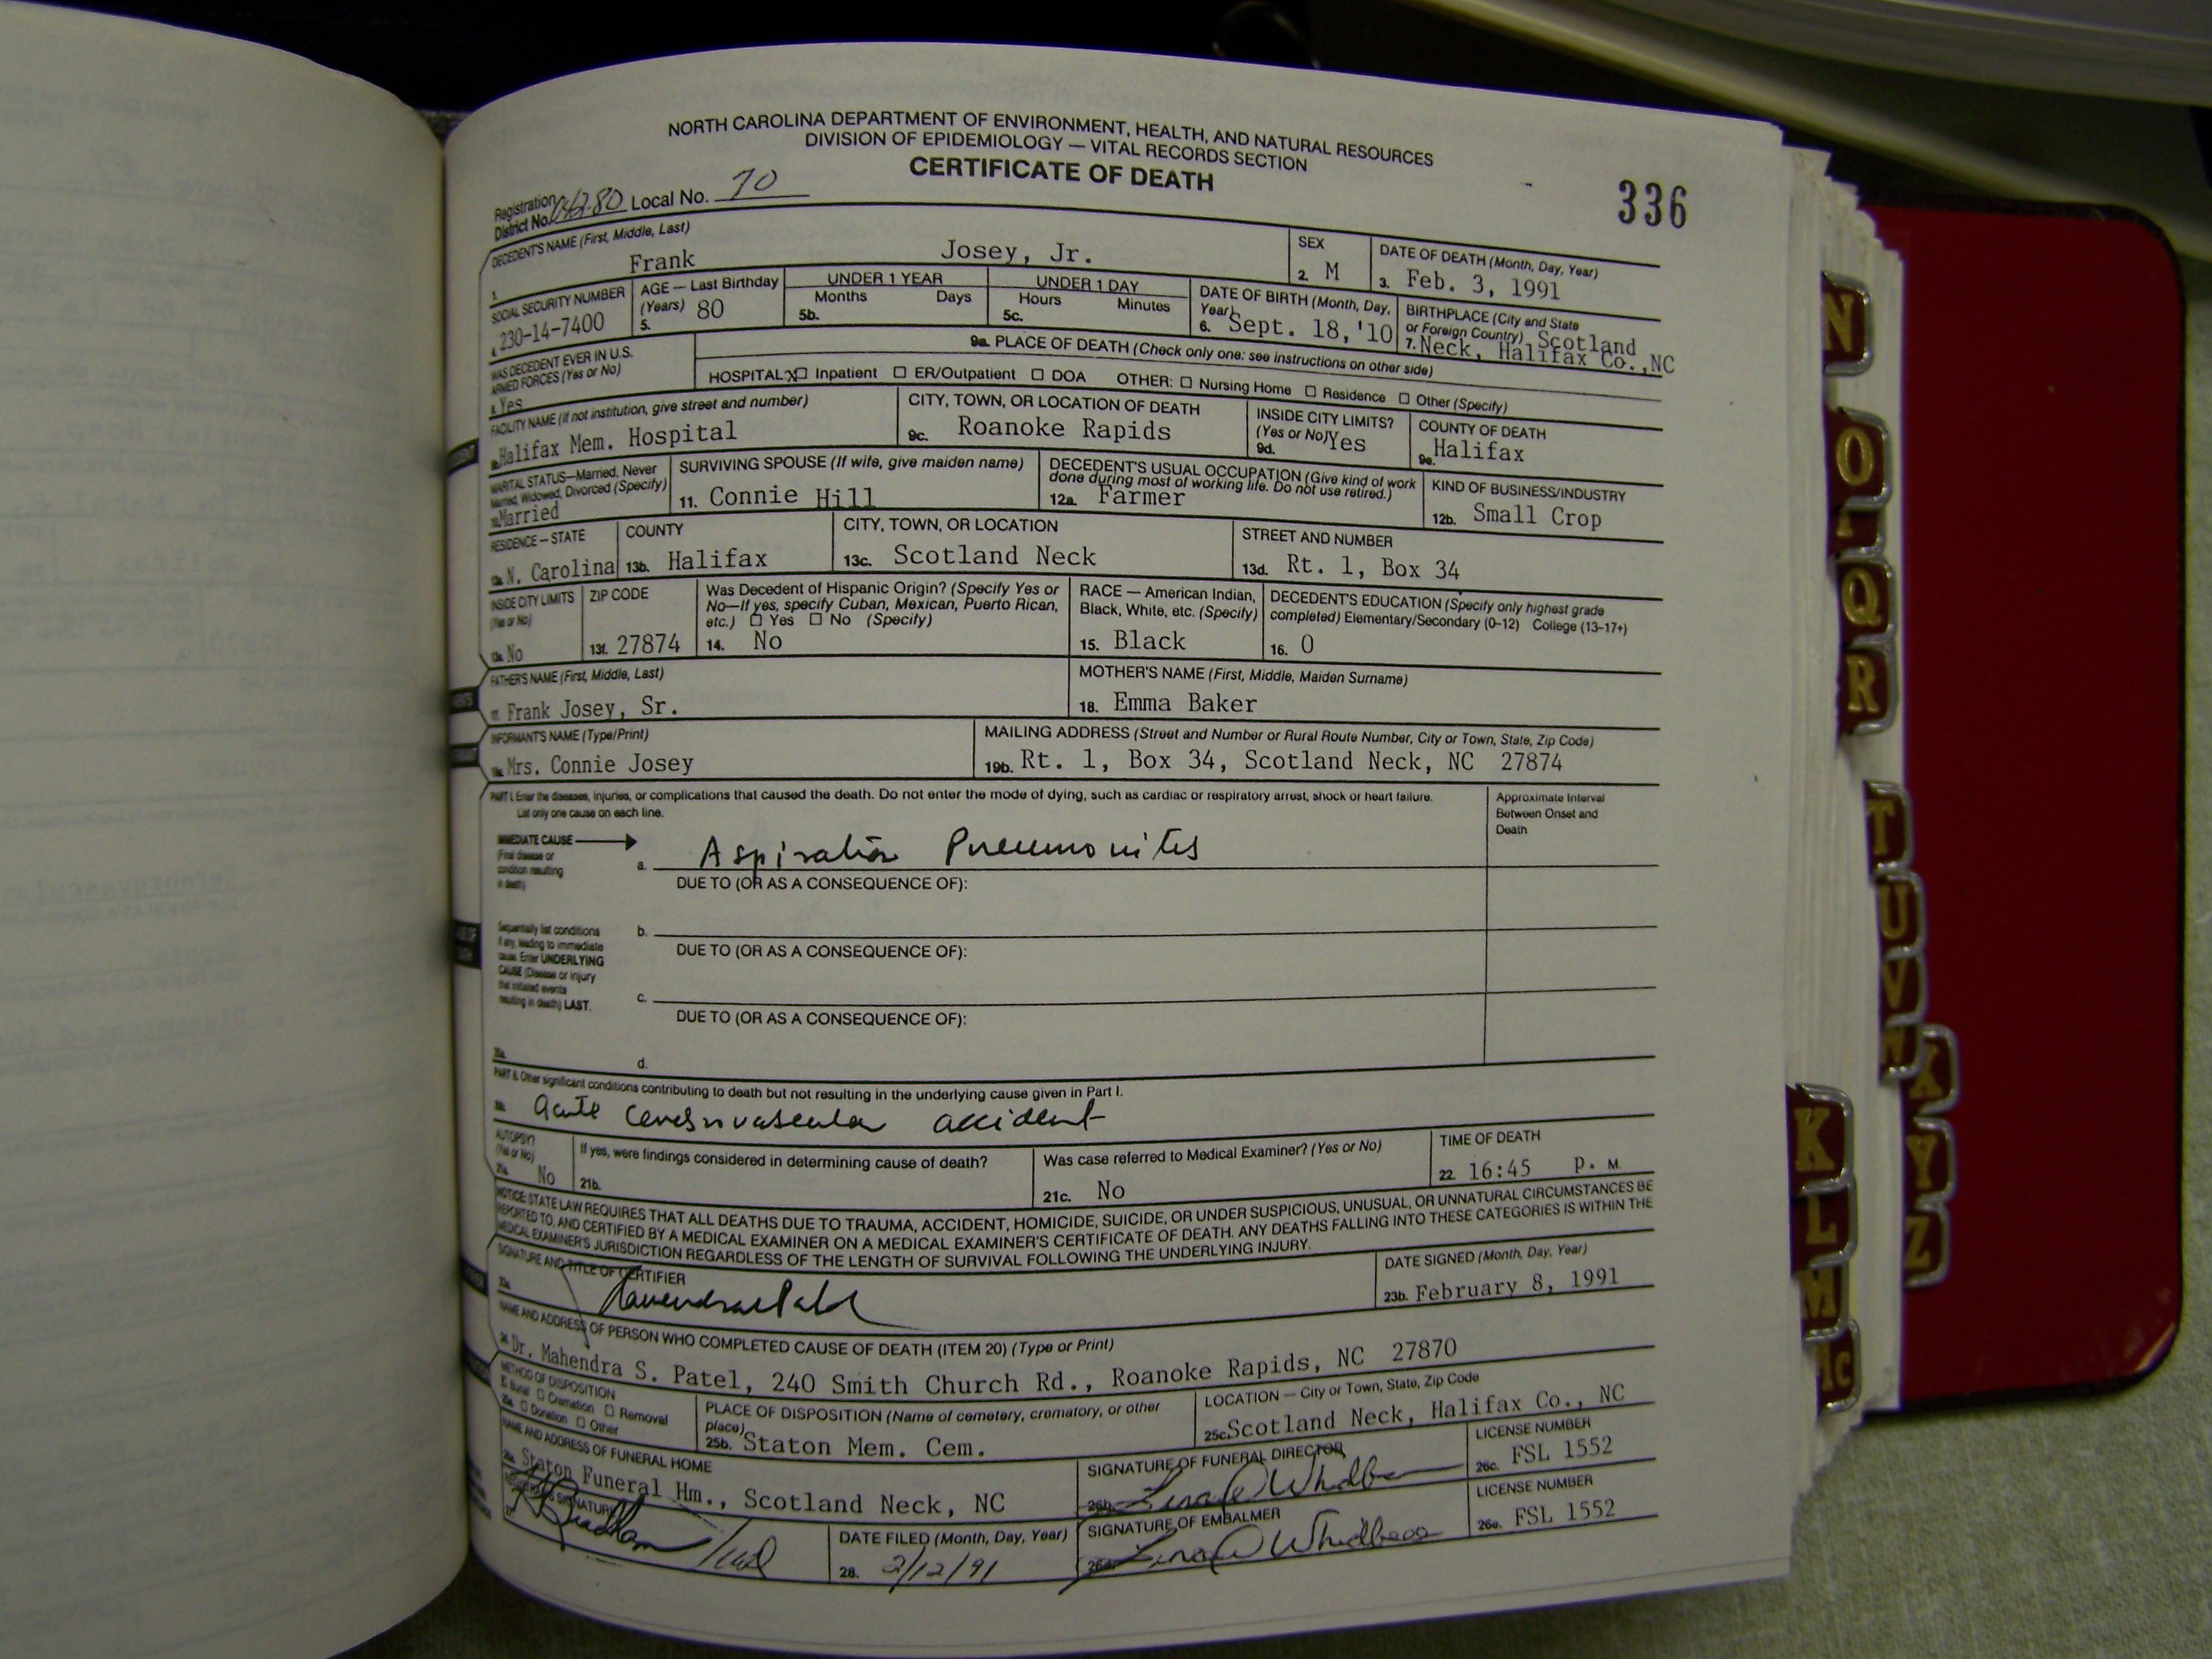 NORTH CAROLINA DEPARTMENT OF ENVIRONMENT, HEALTH, AND NATURAL RESOURCES
DIVISION OF EPIDEMIOLOGY — VITAL RECORDS SECTION
CERTIFICATE OF DEATH
336
Registration District No. 04280 Local No. 70
DECEDENT'S NAME (First, Middle, Last)
1. Frank Josey, Jr.
SEX
2. M
DATE OF DEATH (Month, Day, Year)
3. Feb. 3, 1991
SOCIAL SECURITY NUMBER
4. 230-14-7400
AGE — Last Birthday
(Years) 80
5.
UNDER 1 YEAR
Months Days
5b.
UNDER 1 DAY
Hours Minutes
5c.
DATE OF BIRTH (Month, Day, Year)
6. Sept. 18, '10
BIRTHPLACE (City and State
or Foreign Country) Scotland
7. Neck, Halifax Co., NC
WAS DECEDENT EVER IN U.S.
ARMED FORCES (Yes or No)
8. Yes
9a. PLACE OF DEATH (Check only one: see instructions on other side)
HOSPITAL: X☐ Inpatient ☐ ER/Outpatient ☐ DOA OTHER: ☐ Nursing Home ☐ Residence ☐ Other (Specify)
FACILITY NAME (If not institution, give street and number)
Halifax Mem. Hospital
CITY, TOWN, OR LOCATION OF DEATH
9c. Roanoke Rapids
INSIDE CITY LIMITS?
(Yes or No) Yes
9d.
COUNTY OF DEATH
9e. Halifax
MARITAL STATUS—Married, Never
Married, Widowed, Divorced (Specify)
10. Married
SURVIVING SPOUSE (If wife, give maiden name)
11. Connie Hill
DECEDENT'S USUAL OCCUPATION (Give kind of work
done during most of working life. Do not use retired.)
12a. Farmer
KIND OF BUSINESS/INDUSTRY
12b. Small Crop
RESIDENCE — STATE
13a. N. Carolina
COUNTY
13b. Halifax
CITY, TOWN, OR LOCATION
13c. Scotland Neck
STREET AND NUMBER
13d. Rt. 1, Box 34
INSIDE CITY LIMITS
(Yes or No)
13e. No
ZIP CODE
13f. 27874
Was Decedent of Hispanic Origin? (Specify Yes or
No—If yes, specify Cuban, Mexican, Puerto Rican,
etc.) ☐ Yes ☐ No (Specify)
14. No
RACE — American Indian,
Black, White, etc. (Specify)
15. Black
DECEDENT'S EDUCATION (Specify only highest grade
completed) Elementary/Secondary (0-12) College (13-17+)
16. 0
FATHER'S NAME (First, Middle, Last)
17. Frank Josey, Sr.
MOTHER'S NAME (First, Middle, Maiden Surname)
18. Emma Baker
INFORMANT'S NAME (Type/Print)
19a. Mrs. Connie Josey
MAILING ADDRESS (Street and Number or Rural Route Number, City or Town, State, Zip Code)
19b. Rt. 1, Box 34, Scotland Neck, NC 27874
PART I. Enter the diseases, injuries, or complications that caused the death. Do not enter the mode of dying, such as cardiac or respiratory arrest, shock or heart failure.
List only one cause on each line.
Approximate Interval
Between Onset and
Death
IMMEDIATE CAUSE
(Final disease or
condition resulting
in death)
a. Aspiration Pneumonitis
DUE TO (OR AS A CONSEQUENCE OF):
Sequentially list conditions
if any, leading to immediate
cause. Enter UNDERLYING
CAUSE (Disease or injury
that initiated events
resulting in death) LAST.
b.
DUE TO (OR AS A CONSEQUENCE OF):
c.
DUE TO (OR AS A CONSEQUENCE OF):
d.
PART II. Other significant conditions contributing to death but not resulting in the underlying cause given in Part I.
Acute cerebrovascular accident
AUTOPSY?
(Yes or No)
21a. No
If yes, were findings considered in determining cause of death?
21b.
Was case referred to Medical Examiner? (Yes or No)
21c. No
TIME OF DEATH
22. 16:45 P. M.
NOTICE: STATE LAW REQUIRES THAT ALL DEATHS DUE TO TRAUMA, ACCIDENT, HOMICIDE, SUICIDE, OR UNDER SUSPICIOUS, UNUSUAL, OR UNNATURAL CIRCUMSTANCES BE
REPORTED TO, AND CERTIFIED BY A MEDICAL EXAMINER ON A MEDICAL EXAMINER'S CERTIFICATE OF DEATH. ANY DEATHS FALLING INTO THESE CATEGORIES IS WITHIN THE
MEDICAL EXAMINER'S JURISDICTION REGARDLESS OF THE LENGTH OF SURVIVAL FOLLOWING THE UNDERLYING INJURY.
SIGNATURE AND TITLE OF CERTIFIER
23a.
DATE SIGNED (Month, Day, Year)
23b. February 8, 1991
NAME AND ADDRESS OF PERSON WHO COMPLETED CAUSE OF DEATH (ITEM 20) (Type or Print)
24. Dr. Mahendra S. Patel, 240 Smith Church Rd., Roanoke Rapids, NC 27870
METHOD OF DISPOSITION
Burial ☐ Cremation ☐ Removal
25a. ☐ Donation ☐ Other
PLACE OF DISPOSITION (Name of cemetery, crematory, or other
place)
25b. Staton Mem. Cem.
LOCATION — City or Town, State, Zip Code
25c. Scotland Neck, Halifax Co., NC
NAME AND ADDRESS OF FUNERAL HOME
26a. Staton Funeral Hm., Scotland Neck, NC
SIGNATURE OF FUNERAL DIRECTOR
26b.
LICENSE NUMBER
26c. FSL 1552
REGISTRAR'S SIGNATURE
27.
DATE FILED (Month, Day, Year)
28. 2/12/91
SIGNATURE OF EMBALMER
26d.
LICENSE NUMBER
26e. FSL 1552
N
O
Q
R
T
U
V
W
X
Y
Z
K
L
M
Mc